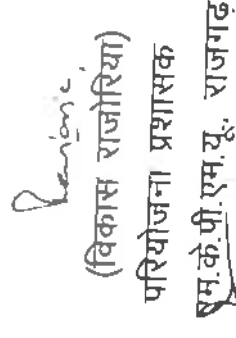 (विकास राजोरिया)
परियोजना प्रशासक
एम.के.पी.एम.यू. राजगढ़